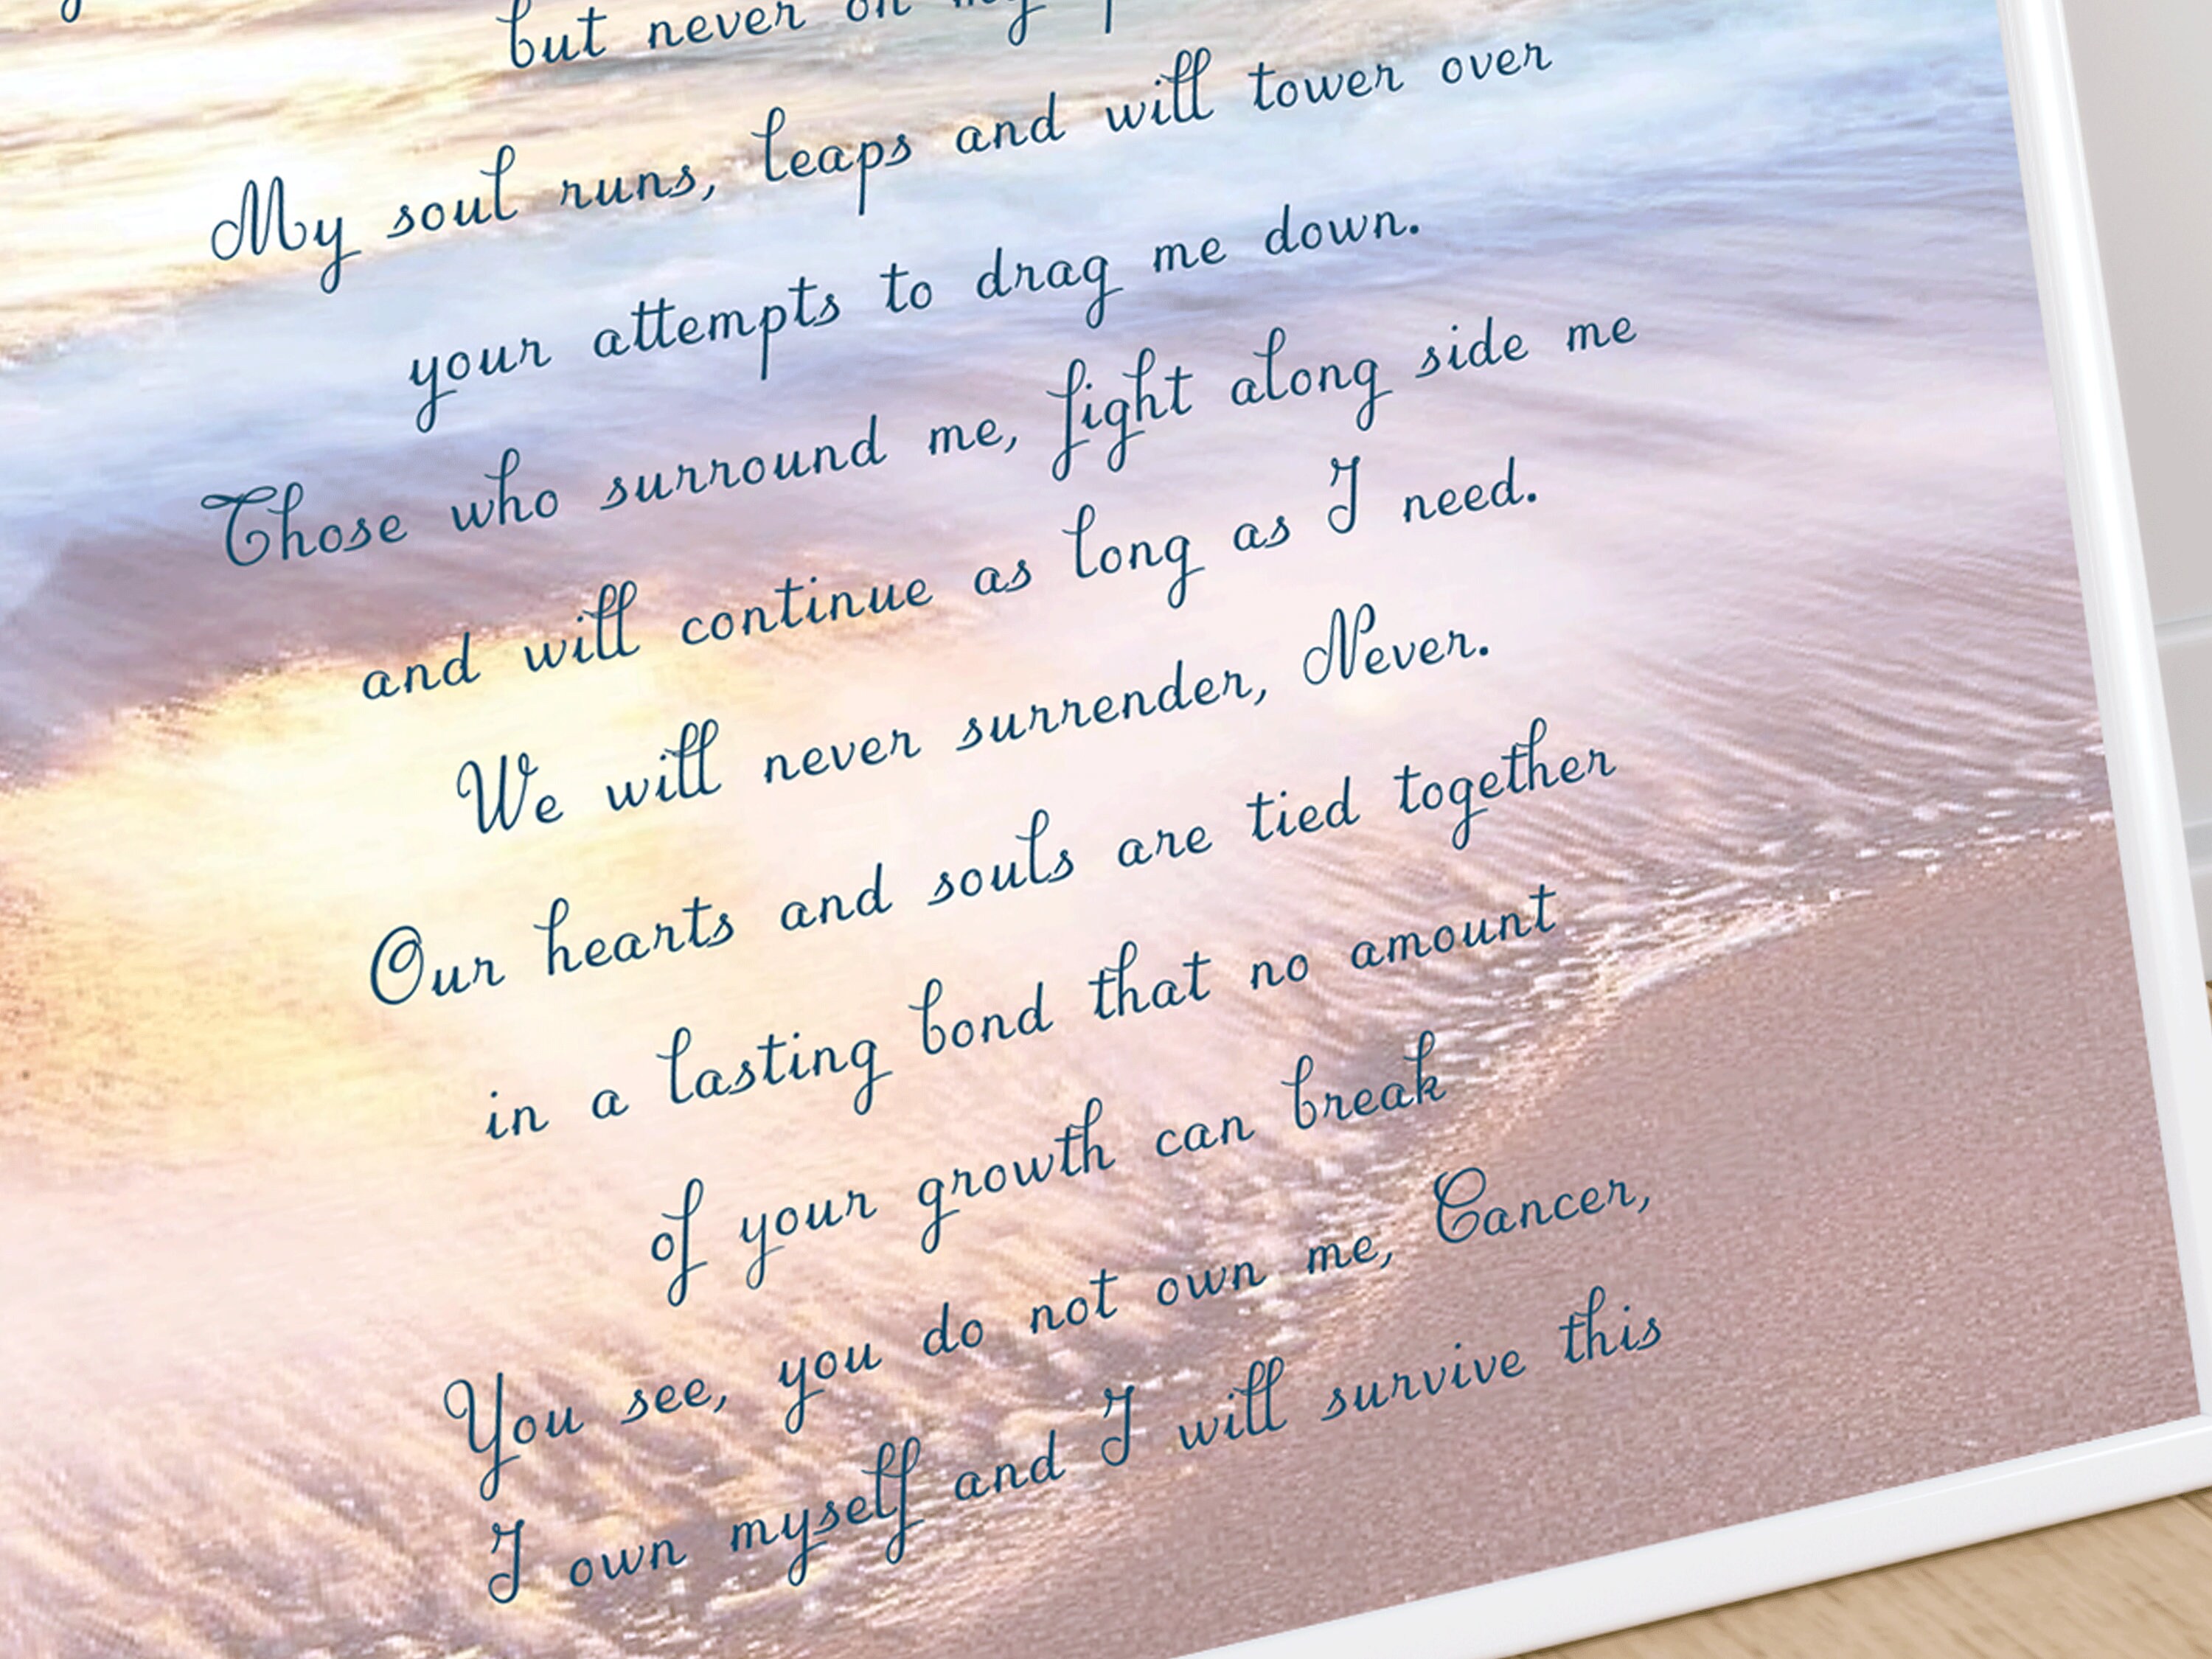 but never on my
My soul runs, leaps and will tower over
your attempts to drag me down.
Those who surround me, fight along side me
and will continue as long as I need.
We will never surrender, Never.
Our hearts and souls are tied together
in a lasting bond that no amount
of your growth can break
You see, you do not own me, Cancer,
I own myself and I will survive this